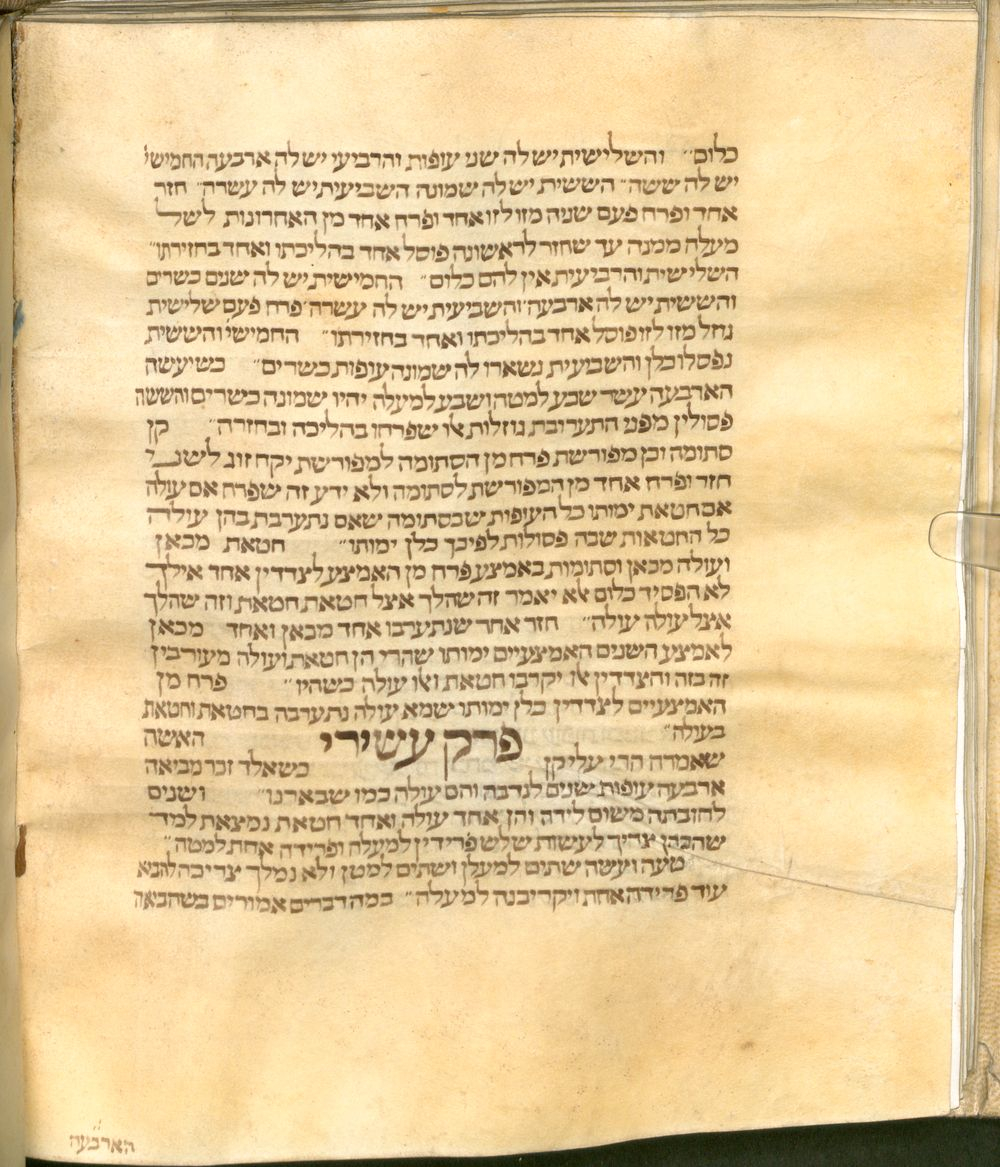 כלום״ והשלישית יש לה שני עופות והרביעי יש לה ארבעה החמישי
יש לה ששה״ הששית יש לה שמונה השביעית יש לה עשרה״ חזר
אחד ופרח פעם שניה מזו לזו אחד ופרח אחד מן האחרונות לשל
מעלה ממנה עד שחזר לראשונה פוסל אחד בהליכתו ואחד בחזירתו״
השלישית והרביעית אין להם כלום״ החמישית יש לה שנים כשרים
והששית יש לה ארבעה והשביעית יש לה עשרה׳ פרח פעם שלישית
גוזל מזו לזו פוסל אחד בהליכתו ואחד בחזירתו״ החמישי והששית
נפסלו כלן והשביעית נשארו לה שמונה עופות כשרים״ כשיעשה
הארבעה עשר שבע למטה ושבע למעלה יהיו שמונה כשרים והששה
פסולין מפני התערובת גוזלות או שפרחו בהליכה ובחזרה״ קן
סתומה וכן מפורשת פרח מן הסתומה למפורשת יקח זוג לשני
חזר ופרח אחד מן המפורשת לסתומה ולא ידע זה שפרח אם עולה
אם חטאת ימותו כל העופות שבסתומה שאם נתערבת בהן עולה
כל החטאות שבה פסולות לפיכך כלן ימותו״ חטאת מכאן
ועולה מכאן וסתומות באמצע פרח מן האמצע לצדדין אחד אילך
לא הפסיד כלום אלא יאמר זה שהלך אצל חטאת חטאת וזה שהלך
אצל עולה עולה״ חזר אחר שנתערבו אחד מכאן ואחד מכאן
לאמצע השנים האמצעיים ימותו שהרי הן חטאת ועולה מעורבין
זה בזה והצדדין או יקרבו חטאת או עולה כשהיו״ פרח מן
האמצעיים לצדדין כלן ימותו שמא עולה נתערבה בחטאת וחטאת
בעולה״ פרק עשירי האשה
שאמרה הרי עלי קן כשאלד זכר מביאה
ארבעה עופות שנים לנדבה והם עולה כמו שבארנו״ ושנים
לחובתה משום לידה והן אחד עולה ואחד חטאת נמצאת למד
שהכהן צריך לעשות שלש פרידין למעלה ופרידה אחת למטה״
טעה ועשה שתים למעלן ושתים למטן ולא נמלך צריכה להביא
עוד פרידה אחת ויקריבנה למעלה״ במה דברים אמורים בשהבאה
הארבעה